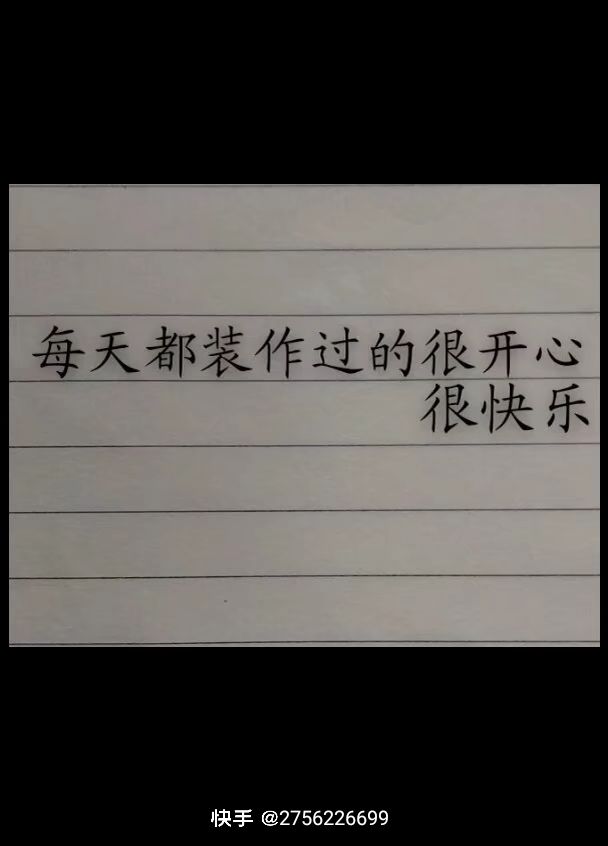 每天都装作过的很开心
很快乐
快手 @2756226699